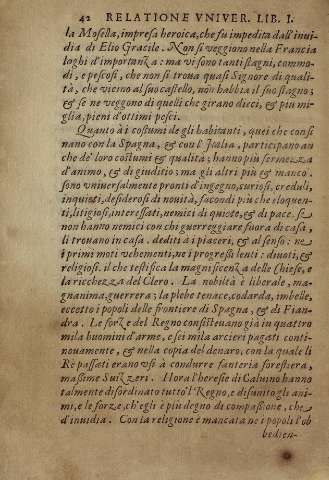 42 RELATIONE VNIVER. LIB. I.
la Mosella, impresa heroica, che fu impedita dall'inui-
dia di Elio Gracile. Non si veggiono nella Francia
laghi d'importanza: ma vi sono tanti stagni, commo-
di, e pescosi, che non si troua quasi Signore di quali-
tà, che vicino al suo castello, non habbia il suo stagno;
& se ne veggono di quelli che girano dieci, & piu mi-
glia, pieni d'ottimi pesci.
Quanto à i costumi de gli habitanti, quei che confi-
nano con la Spagna, & con l'Italia, participano an
che de' loro costumi & qualità; hanno più fermezza
d'animo, & di giuditio; ma gli altri più & manco
sono vniuersalmente pronti d'ingegno, curiosi, creduli,
inquieti, desiderosi di nouità, facondi più che eloquen-
ti, litigiosi, interessati, nemici di quiete, & di pace. se
non hanno nemici con chi guerreggiare fuora di casa,
li trouano in casa. dediti a i piaceri, & al senso: ne
i primi moti vehementi, ne i progressi lenti: diuoti, &
religiosi. il che testifica la magnificenza delle Chiese, e
la ricchezza del Clero. La nobiltà è liberale, ma-
gnanima, guerrera; la plebe tenace, codarda, imbelle,
eccetto i popoli delle frontiere di Spagna, & di Fian-
dra. Le forze del Regno consisteuano già in quattro
mila huomini d'arme, e sei mila arcieri pagati conti-
nouamente, & nella copia del denaro, con la quale li
Rè passati erano vsi à condurre fanteria forestiera,
massime Suizzeri. Hora l'heresie di Caluino hanno
talmente disordinato tutto'l Regno, e disunito gli ani-
mi, e le forze, ch'egli è più degno di compassione, che
d'inuidia. Con la religione è mancata ne i popoli l'ob
bedien-